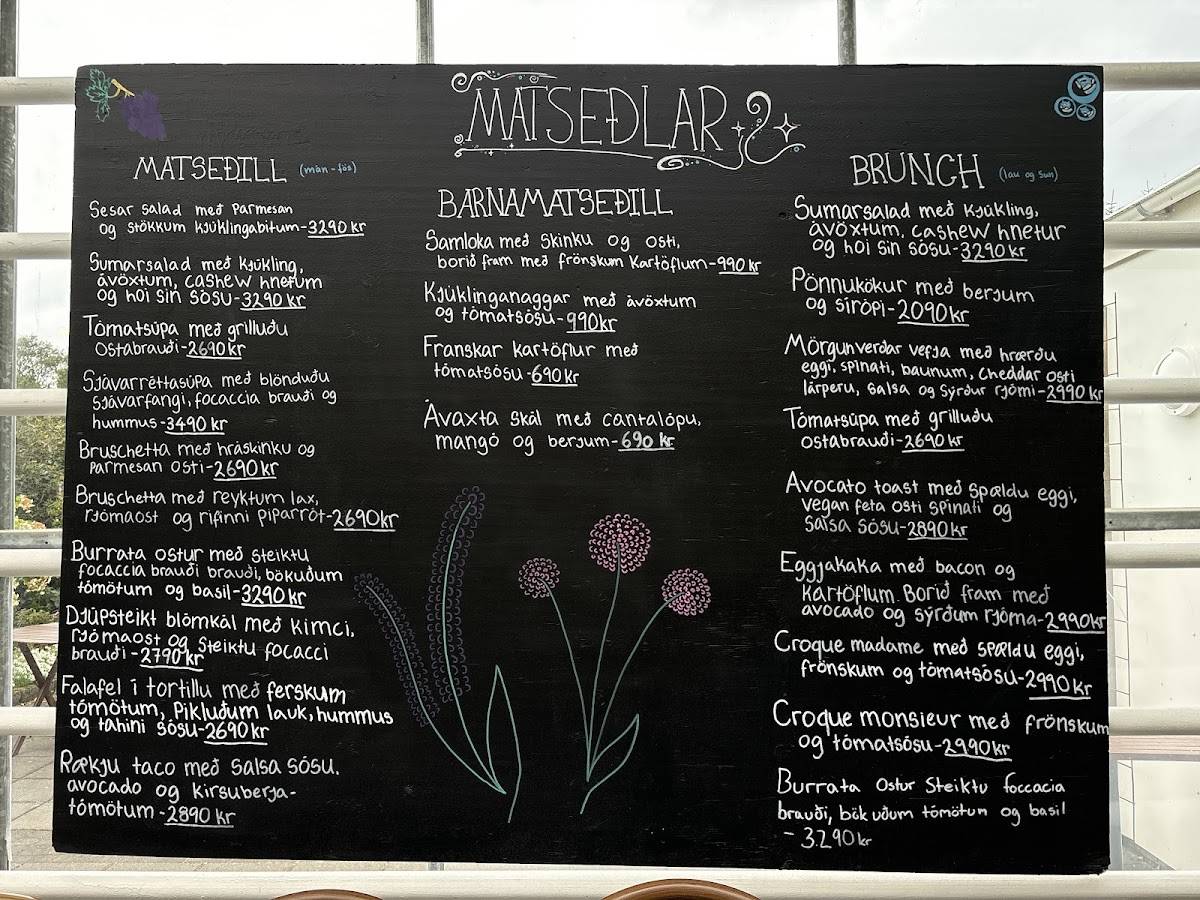 MATSEÐLAR
MATSEÐILL (mán-fös)
Sesar salad með Parmesan
og stökkum kjúklingabitum-3290 kr
Sumarsalad með kjúkling,
ávöxtum, cashew hnetum
og hoi sin sósu-3290 kr
Tómatsúpa með grilluðu
ostabrauði-2690 kr
Sjávarréttasúpa með blönduðu
sjávarfangi, focaccia brauði og
hummus-3490 kr
Bruschetta með hráskinku og
Parmesan osti-2690 kr
Bruschetta með reyktum lax,
rjómaost og rifinni piparrót-2690kr
Burrata ostur með steiktu
focaccia brauði brauði, bökuðum
tómötum og basil-3290 kr
Djúpsteikt blómkál með kimci,
rjómaost og steiktu focacci
brauði-2790 kr
Falafel í tortillu með ferskum
tómötum, Pikluðum lauk, hummus
og tahini sósu-2690 kr
Rækju taco með salsa sósu.
avocado og kirsuberja-
tómötum-2890 kr
BARNAMATSEÐILL
Samloka með skinku og osti,
borið fram með frönskum kartöflum-990 kr
Kjúklinganaggar með ávöxtum
og tómatsósu-990kr
Franskar kartöflur með
tómatsósu-690 kr
Ávaxta skál með cantalópu,
mangó og berjum-690 kr
BRUNCH (lau og sun)
Sumarsalad með kjúkling,
ávöxtum, cashew hnetur
og hoi sin sósu-3290 kr
Pönnukökur með berjum
og sírópi-2090kr
Mörgunverdar vefja með hrærðu
eggi, spínati, baunum, cheddar osti
lárperu, salsa og sýrður rjómi-2990 kr
Tómatsúpa með grilluðu
ostabrauði-2690 kr
Avocato toast með spældu eggi,
vegan feta osti spínati og
salsa sósu-2890 kr
Eggjakaka með bacon og
kartöflum. Borið fram með
avocado og sýrðum rjóma-2990kr
Croque madame með spældu eggi,
frönskum og tómatsósu-2990 kr
Croque monsieur með frönskum
og tómatsósu-2990 kr
Burrata Ostur Steiktu foccacia
brauði, bökuðum tómötum og basil
- 3.290 kr